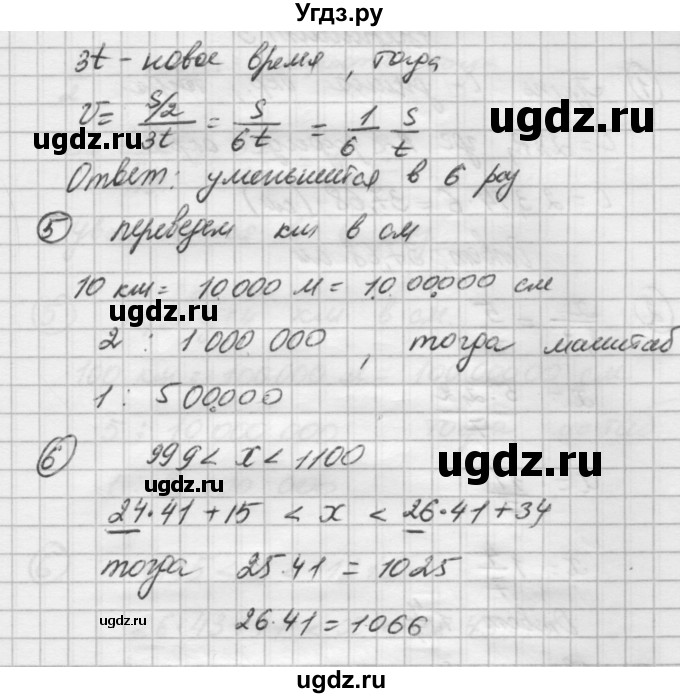 Угдз.ру
3t - новое время, тогда
V = S/2 / 3t = S / 6t = 1/6 S/t
ugdz.ru ugdz.ru
Ответ: уменьшится в 6 раз
⑤ переведем км в см
10 км = 10000 м = 1000000 см
ugdz.ru ugdz.ru
2 : 1 000 000, тогда масштаб
1 : 500000
⑥ 999 < x < 1100
ugdz.ru ugdz.ru
24·41 + 15 < x < 26·41 + 34
тогда 25·41 = 1025
ugdz.ru
26·41 = 1066
ugdz.ru ugdz.ru